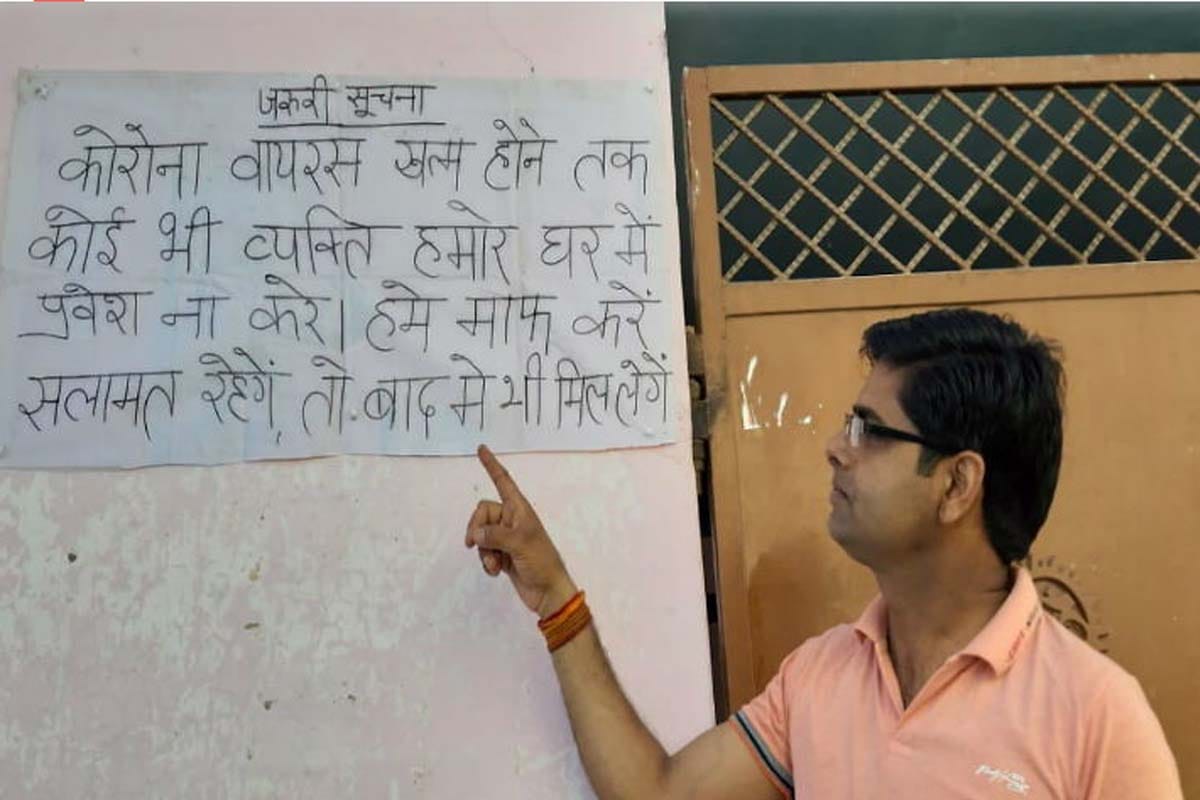 जरुरी सूचना
कोरोना वायरस खत्म होने तक
कोई भी व्यक्ति हमारे घर में
प्रवेश ना करे। हमे माफ करें
सलामत रहेगें, तो बाद मे भी मिल लेगें